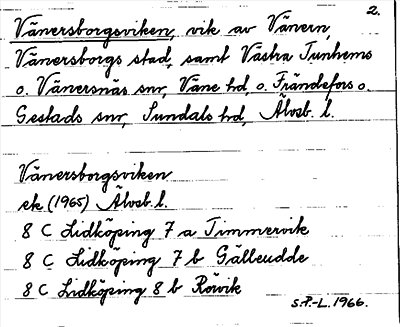 2.
Vänersborgsviken, vik av Vänern,
Vänersborgs stad, samt Västra Tunhems
o. Vänersnäs snr, Väne hd, o. Frändefors o.
Gestads snr, Sundals hd, Älvsb. l.
Vänersborgsviken
ek (1965) Älvsb. l.
8 C Lidköping 7 a Timmervik
8 C Lidköping 7 b Gälleudde
8 C Lidköping 8 b Rövik
S.P-L. 1966.